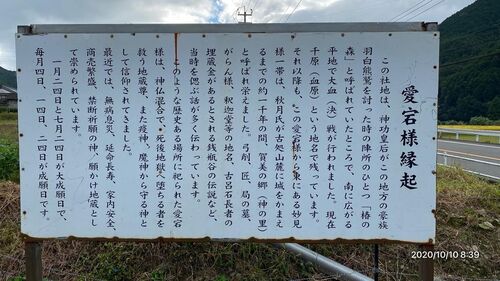 愛宕様縁起
この社地は、神功皇后がこの地方の豪族
羽白熊鷲を討った時の陣所のひとつ「椿の
森」と呼ばれていたところで、南に広がる
平地で大血（決）戦が行われました。現在
千原（血原）という地名で残っています。
それ以降も、この愛宕様から東にある妙見
様一帯は、秋月氏が古処山麓に城をかまえ
るまでの約一千年の間、賀美の郷（神の里）
と呼ばれ栄えました。弓削、匠、局の墓、
がらん様、釈迦堂等の地名、古呂石長者の
埋蔵金があるとされる銭瓶谷の伝説など、
当時を偲ぶ話が多く伝わっています。
このような歴史ある場所に祀られた愛宕
様は、神仏混合で、死後地獄へ堕ちる者を
救う地蔵尊、また疫神、魔神から守る神と
して信仰されてきました。
最近では、無病息災、延命長寿、家内安全、
商売繁盛、禁断祈願の神、願かけ地蔵とし
て崇められています。
一月二四日と七月二四日が大成願日で、
毎月四日、一四日、二四日が成願日です。
2020/10/10 8:39